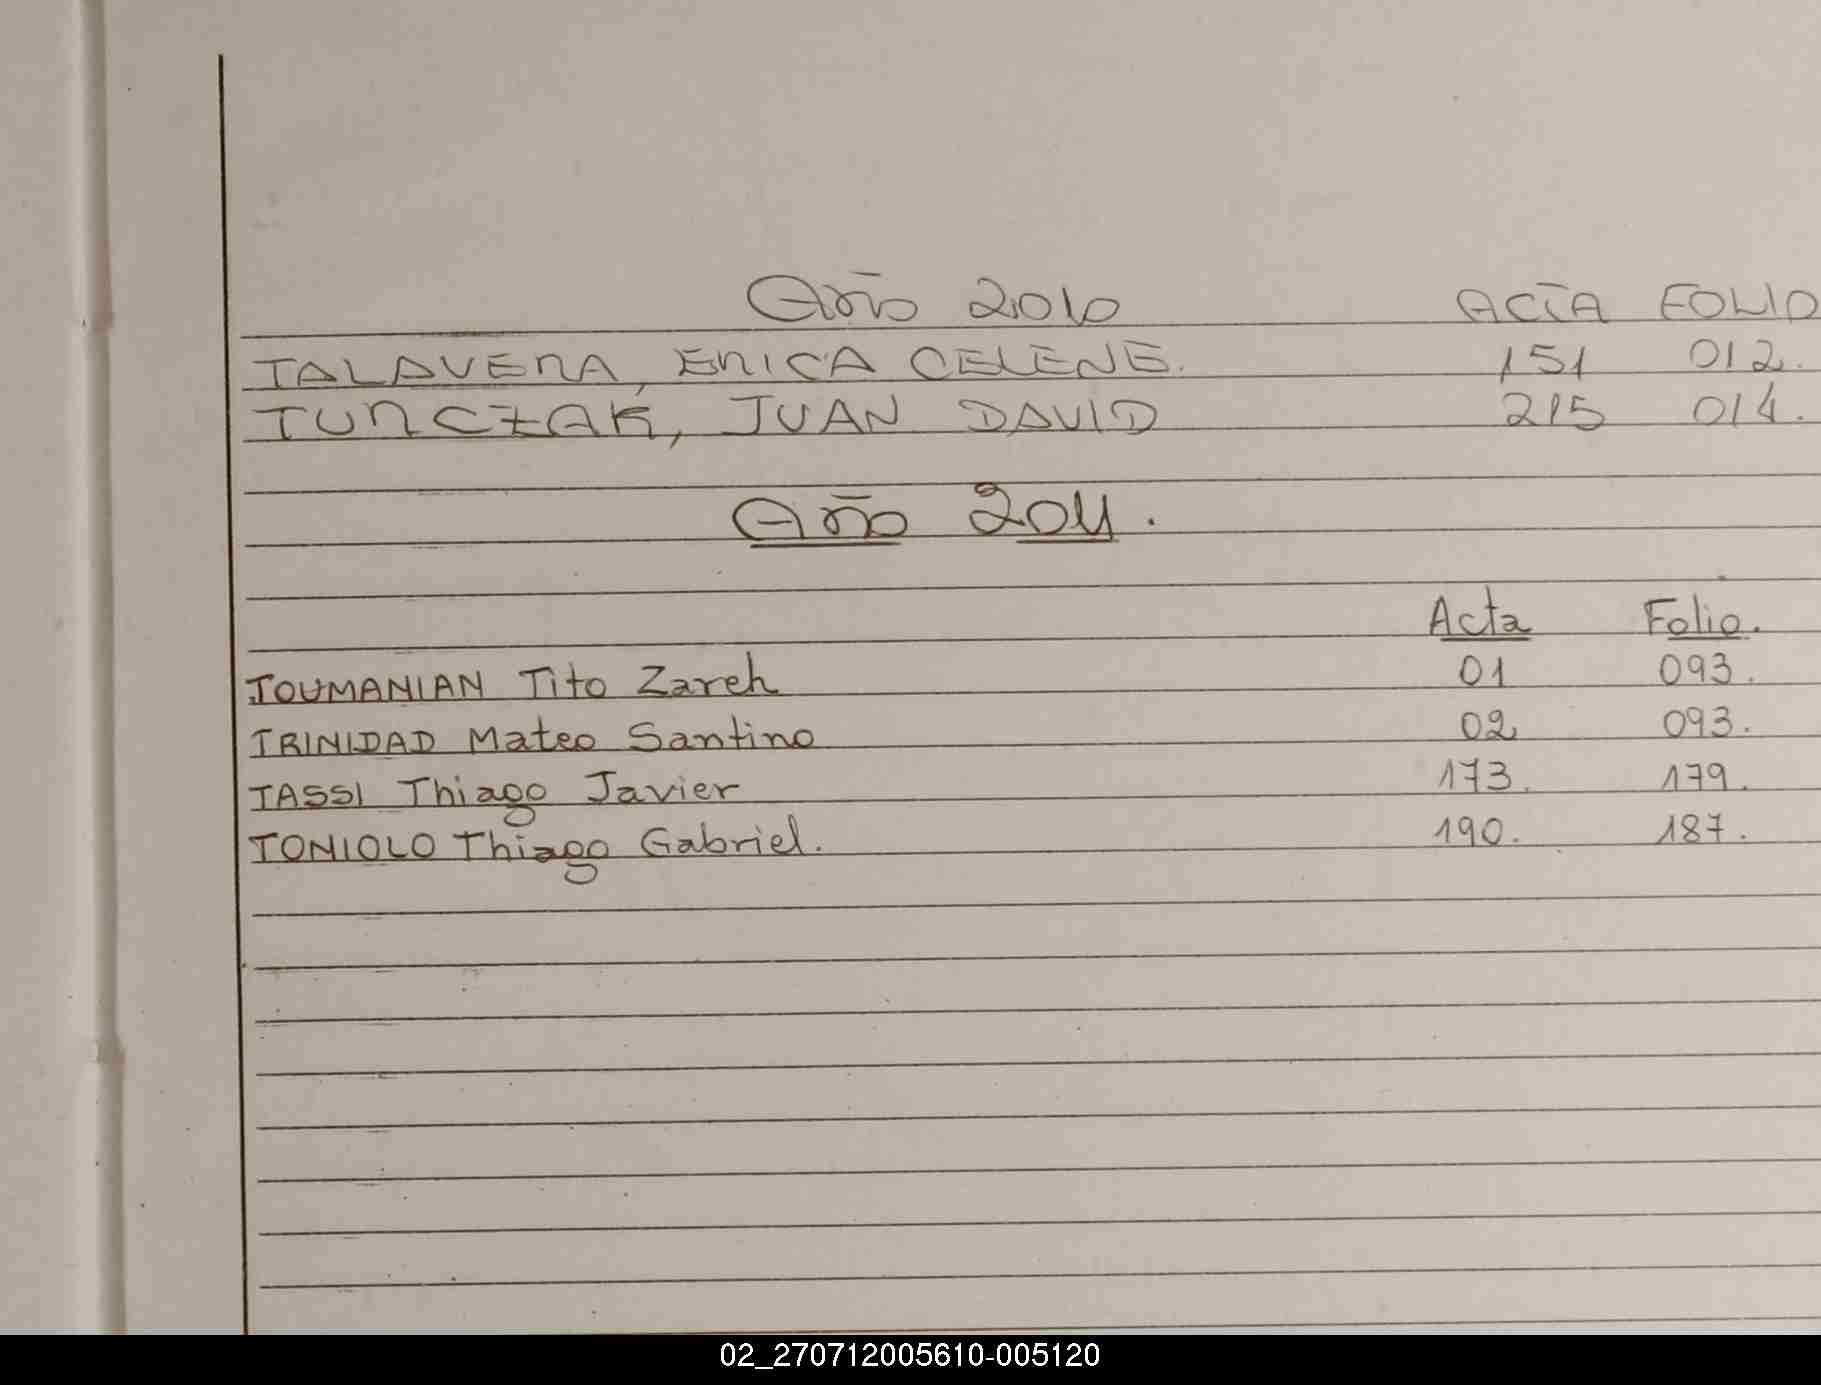 Año 2010 ACTA FOLIO
TALAVERA, ERICA CELENE. 151 012.
TURCZAK, JUAN DAVID 215 014.
Año 2011.
Acta Folio.
TOUMANIAN Tito Zareh 01 093.
TRINIDAD Mateo Santino 02 093.
TASSI Thiago Javier 173. 179.
TONIOLO Thiago Gabriel. 190. 187.
02_270712005610-005120